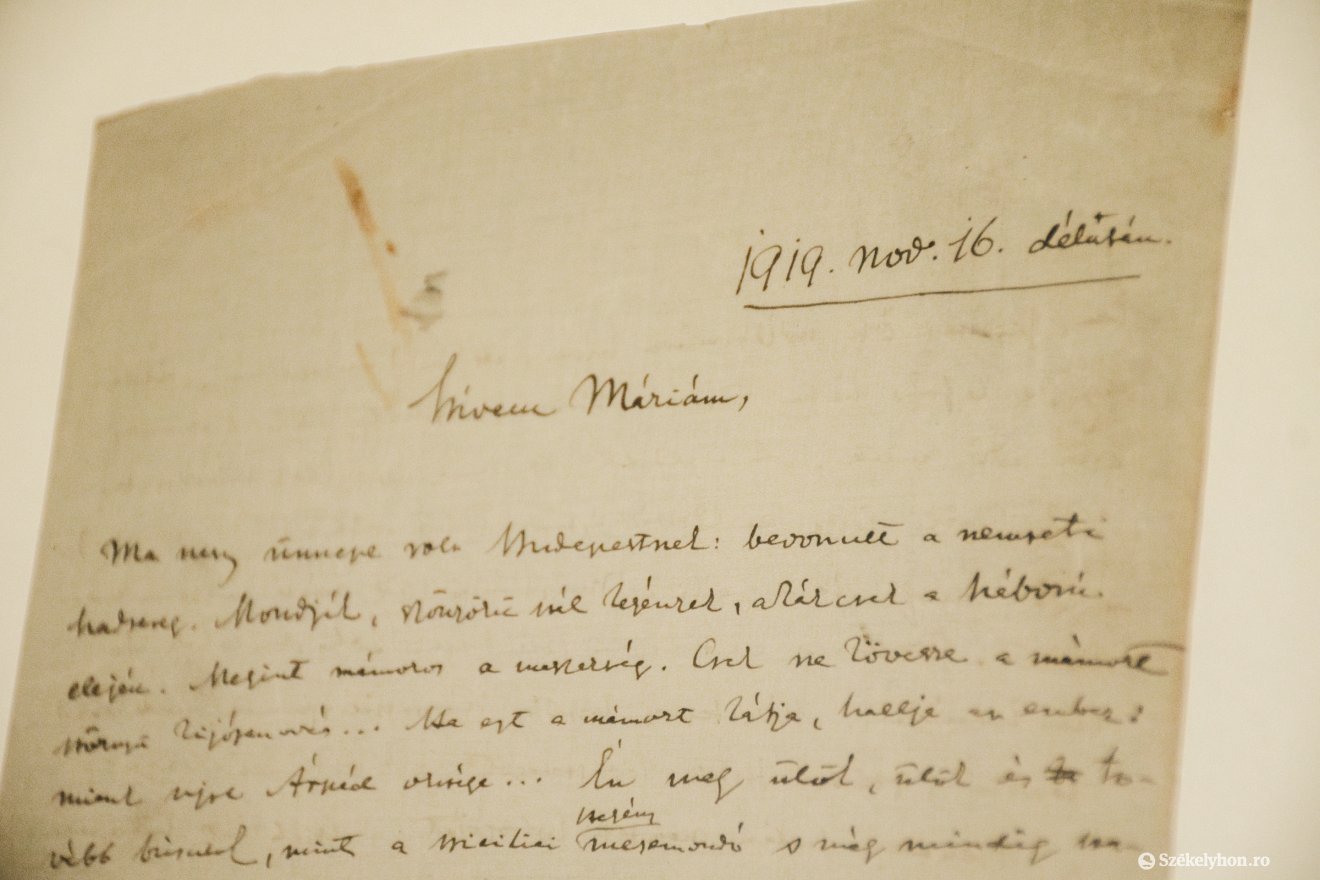 1919. nov. 16. délután.
Szivem Máriám,
Ma nagy ünnepe volt Budapestnek: bevonult a nemzeti
hadsereg. Mondják, szőnyi legények, akárcsak a háború
elején. Megint mámoros a magyarság. Csak ne kövesse a mámort
kijózanodás... Ha ezt a mámort látja, hallja az ember:
miénk ujra Árpád országa... Én meg ülök, ülök és to-
vább busulok, mint a sziciliai
szegény
mesemondó s még mindig
Székelyhon.ro